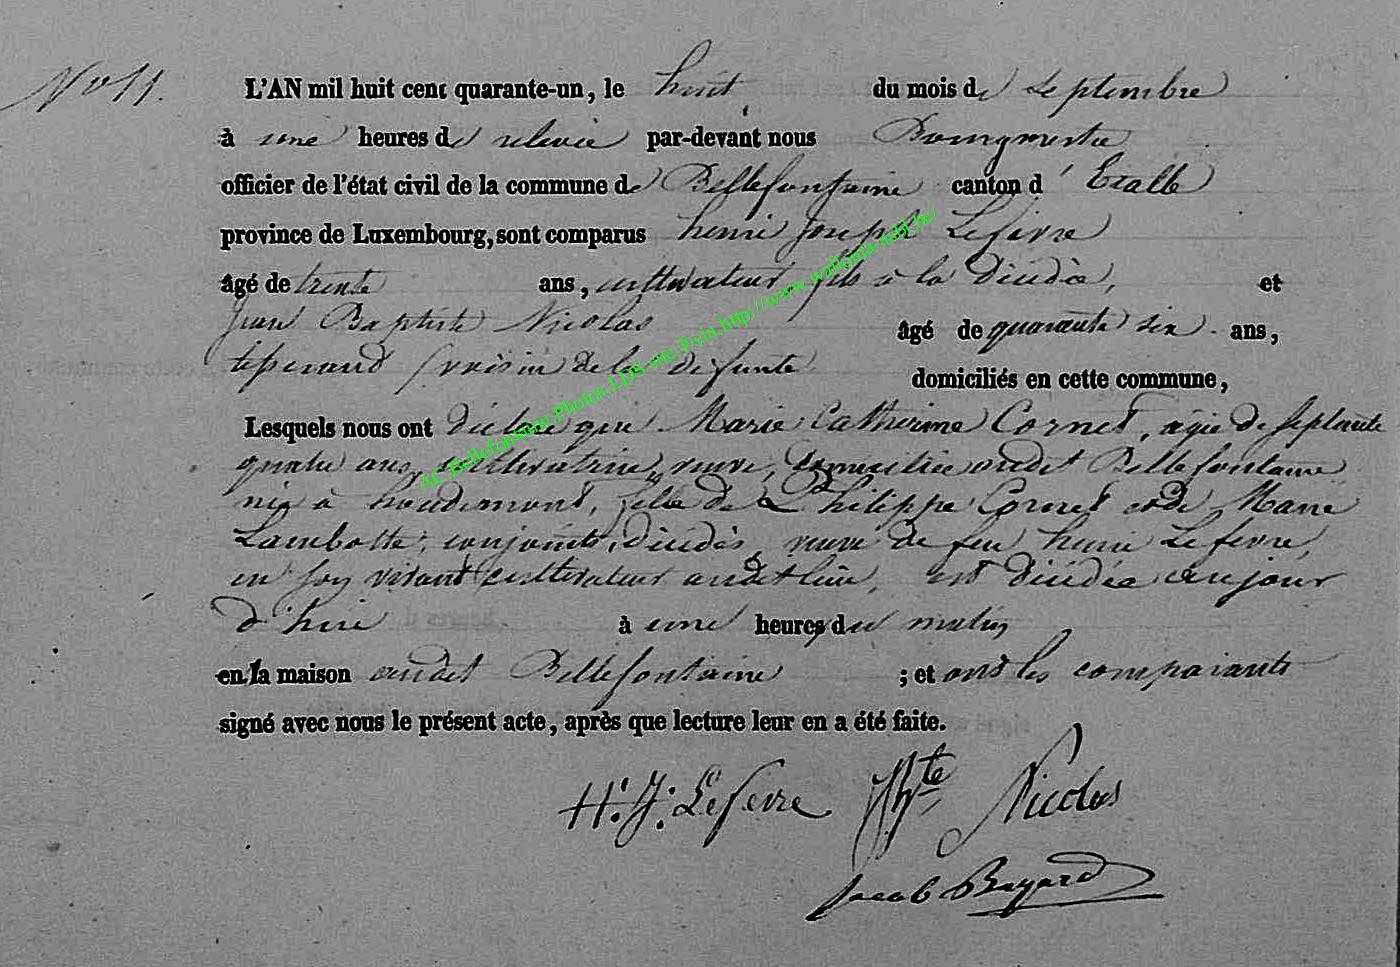 No 11.
L'AN mil huit cent quarante-un, le huit du mois de Septembre
à une heures de relevée par-devant nous Bourgmestre
officier de l'état civil de la commune de Bellefontaine canton d'Etalle
province de Luxembourg, sont comparus henri Joseph Lefevre
âgé de trente ans, cultivateur fils à la décédée, et
Jean Baptiste Nicolas âgé de quarante six ans,
tisserand, voisin de la défunte domiciliés en cette commune,
Lesquels nous ont déclaré que Marie Catherine Cornet, agée de septante
quatre ans, cultivatrice, veuve, domiciliée audit Bellefontaine
née à houdemont, fille de Philippe Cornet et de Marie
Lambotte, conjoints, décédés, veuve de feu henri Lefevre,
en son vivant cultivateur audit lieu, est décédée aujour
d'hui à une heures du matin
en la maison audit Bellefontaine ; et ont les comparants
signé avec nous le présent acte, après que lecture leur en a été faite.
H. J. Lefevre Bte Nicolas
Jacob Bayard
AC Bellefontaine Photos LDS site via http://www.wallonia-asbl.be/